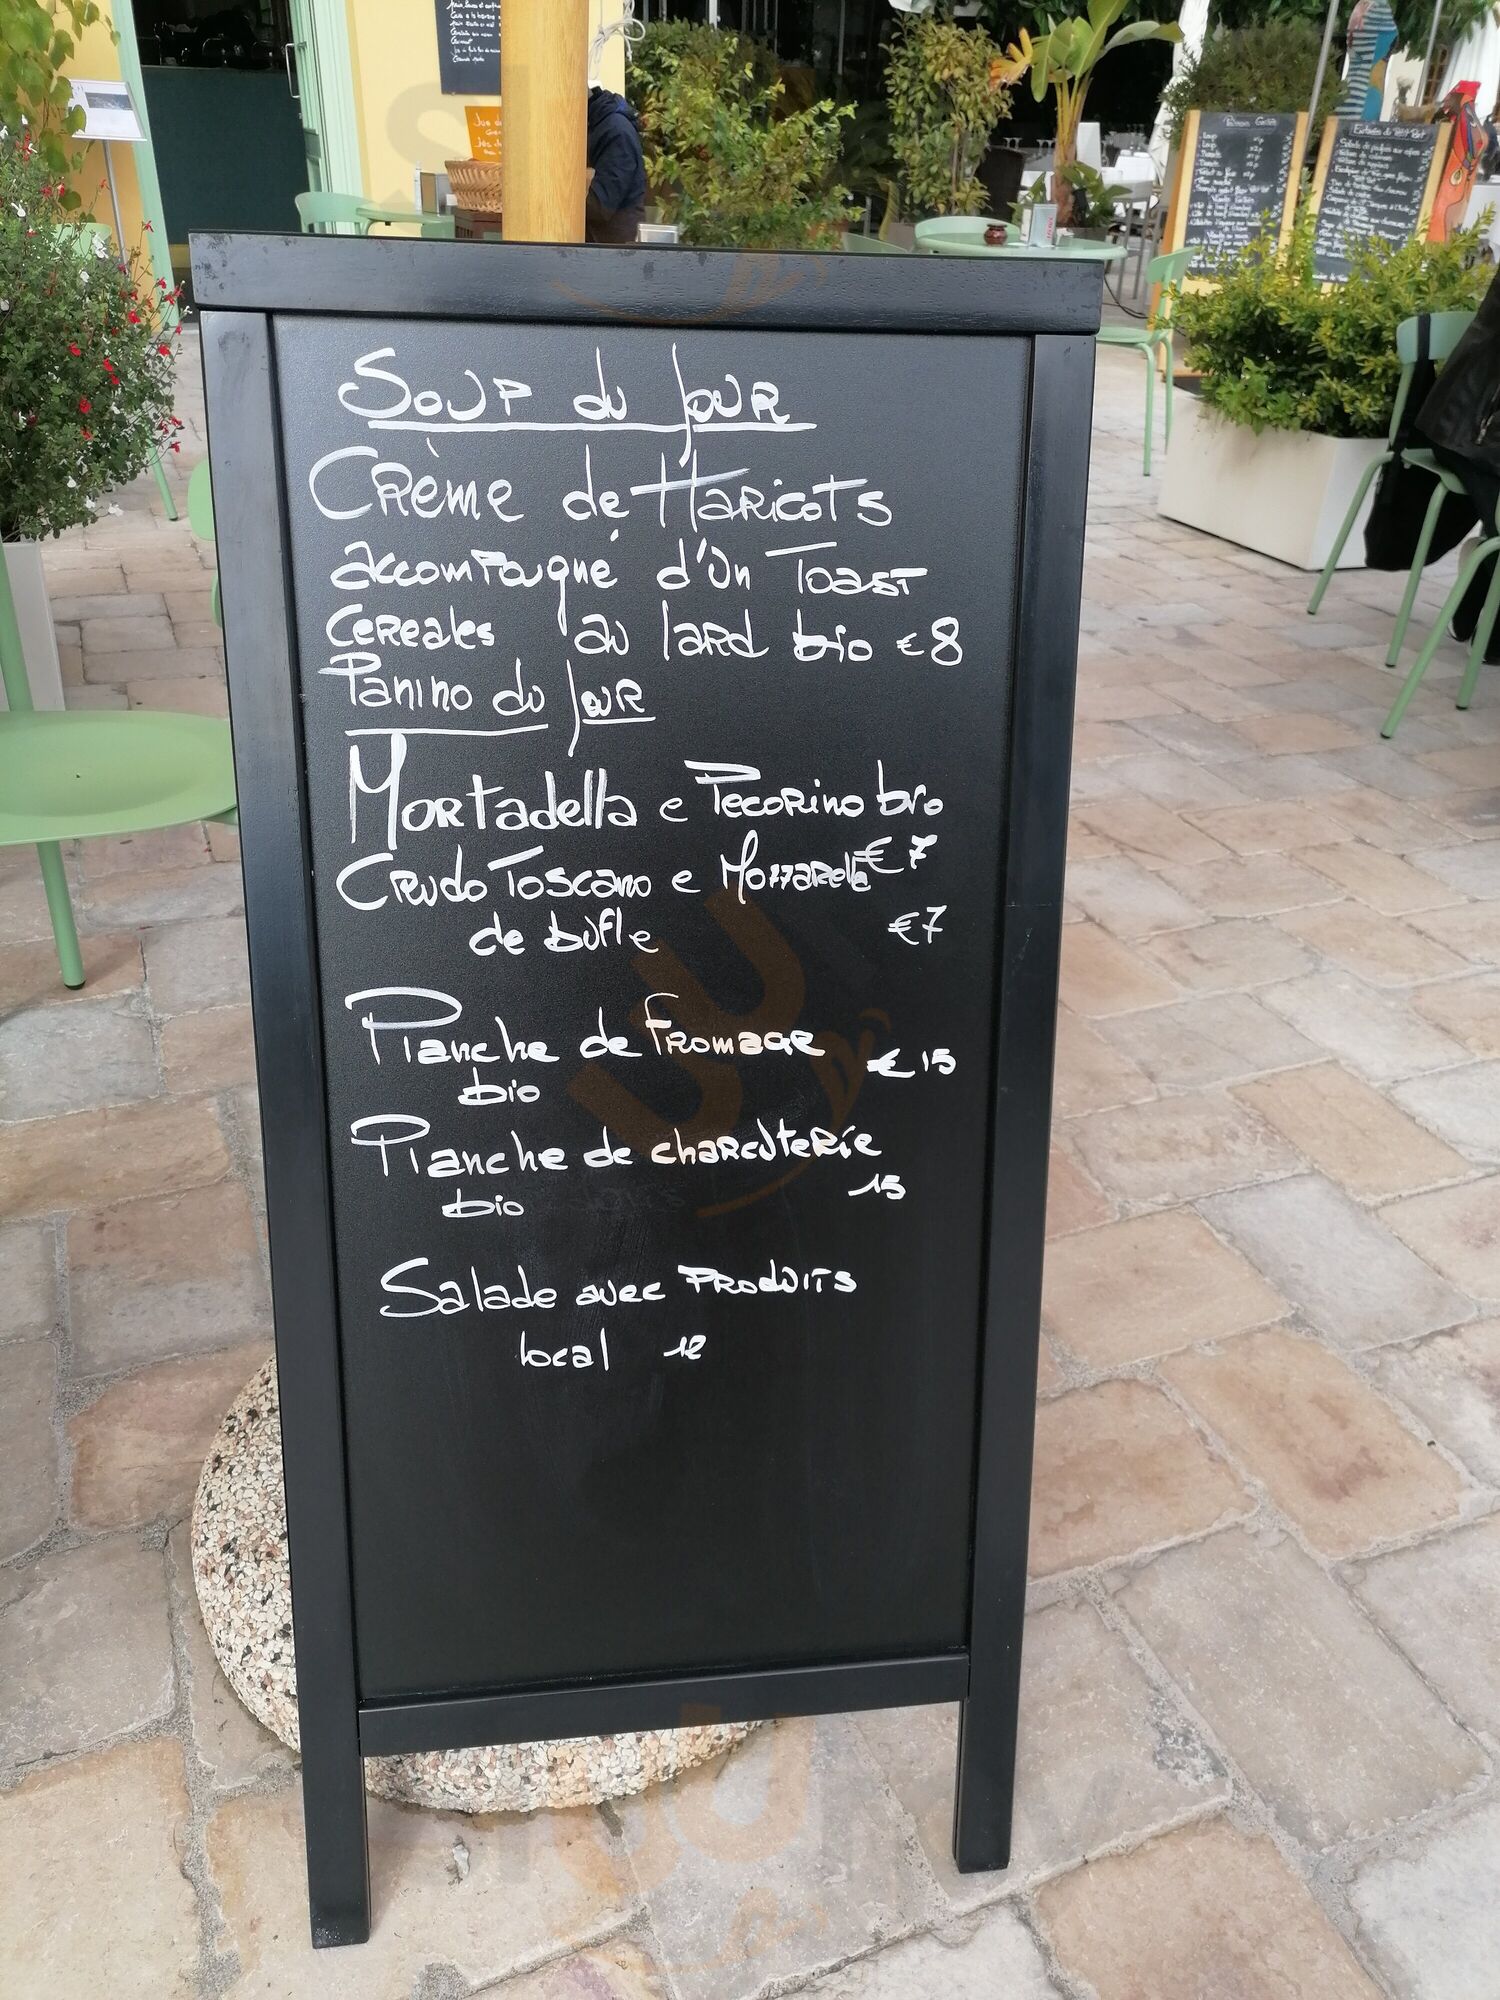 Soup du Jour
Crème de Haricots
accompagné d'un Toast
Cereales au lard bio €8
Panino du Jour
Mortadella e Pecorino bio
€7
Crudo Toscano e Mozzarella
de bufle €7
Planche de fromage
€15
bio
Planche de charcuterie
15
bio
Salade avec Produits
local 12